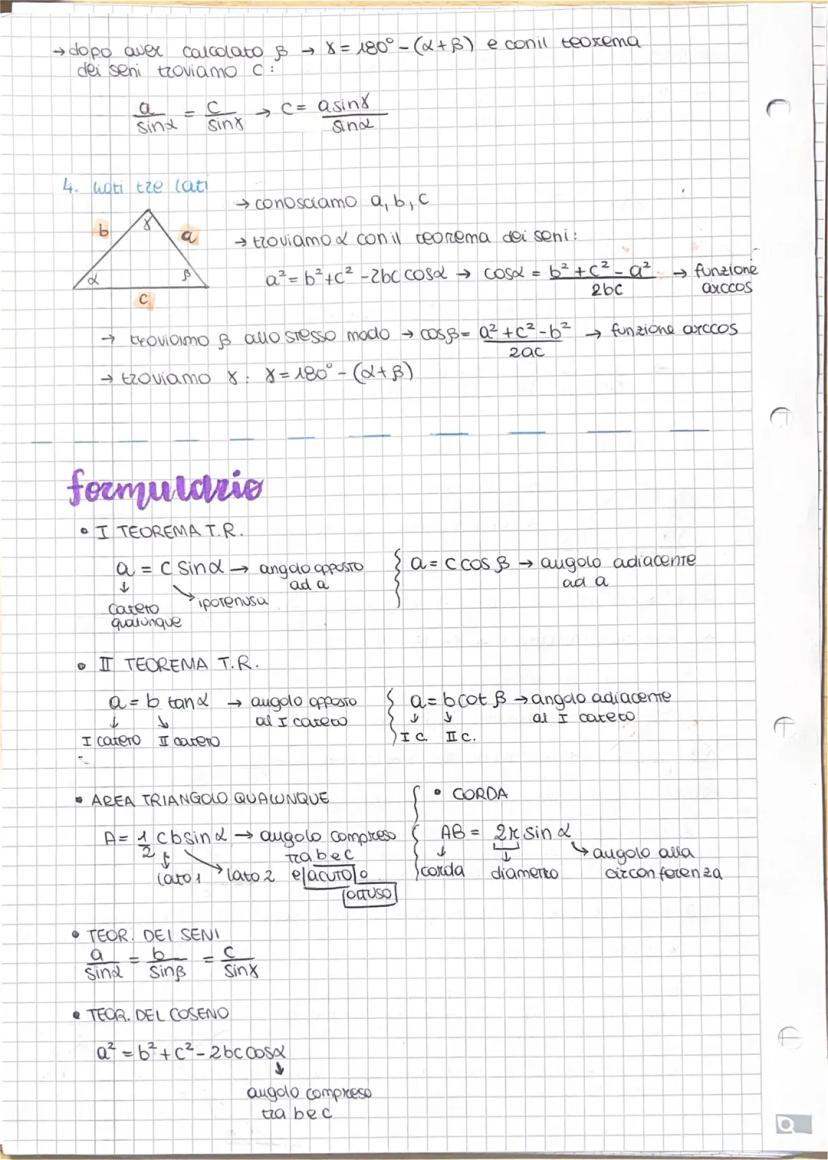 → dopo aver calcolato β → γ = 180° - (α+β) e con il teorema
dei seni troviamo c:
a/sinα = c/sinγ → c = a sinγ/sinα
4. Noti tre lati
→ conosciamo a, b, c
b γ a
→ troviamo α con il teorema dei seni:
α β
c
a² = b² + c² - 2bc cosα → cosα = b² + c² - a²/2bc → funzione
arccos
→ troviamo β allo stesso modo → cosβ = a² + c² - b²/2ac → funzione arccos
→ troviamo γ: γ = 180° - (α+β)
formulario
• I TEOREMA T.R.
a = c sinα → angolo opposto
ad a
↓ cateto
qualunque
↘ ipotenusa
a = c cos β → angolo adiacente
ad a
• II TEOREMA T.R.
a = b tanα → angolo opposto
al I cateto
↓ ↘
I cateto II cateto
a = b cot β → angolo adiacente
al I cateto
↓ ↘
I C. II C.
• AREA TRIANGOLO QUALUNQUE
A = 1/2 cb sinα → angolo compreso
tra b e c
lato 1 lato 2 e acuto o
ottuso
• CORDA
AB = 2r sin α
↓ corda
↓ diametro
↘ angolo alla
circonferenza
• TEOR. DEI SENI
a/sinα = b/sinβ = c/sinγ
• TEOR. DEL COSENO
a² = b² + c² - 2bc cosα
↓
angolo compreso
tra b e c